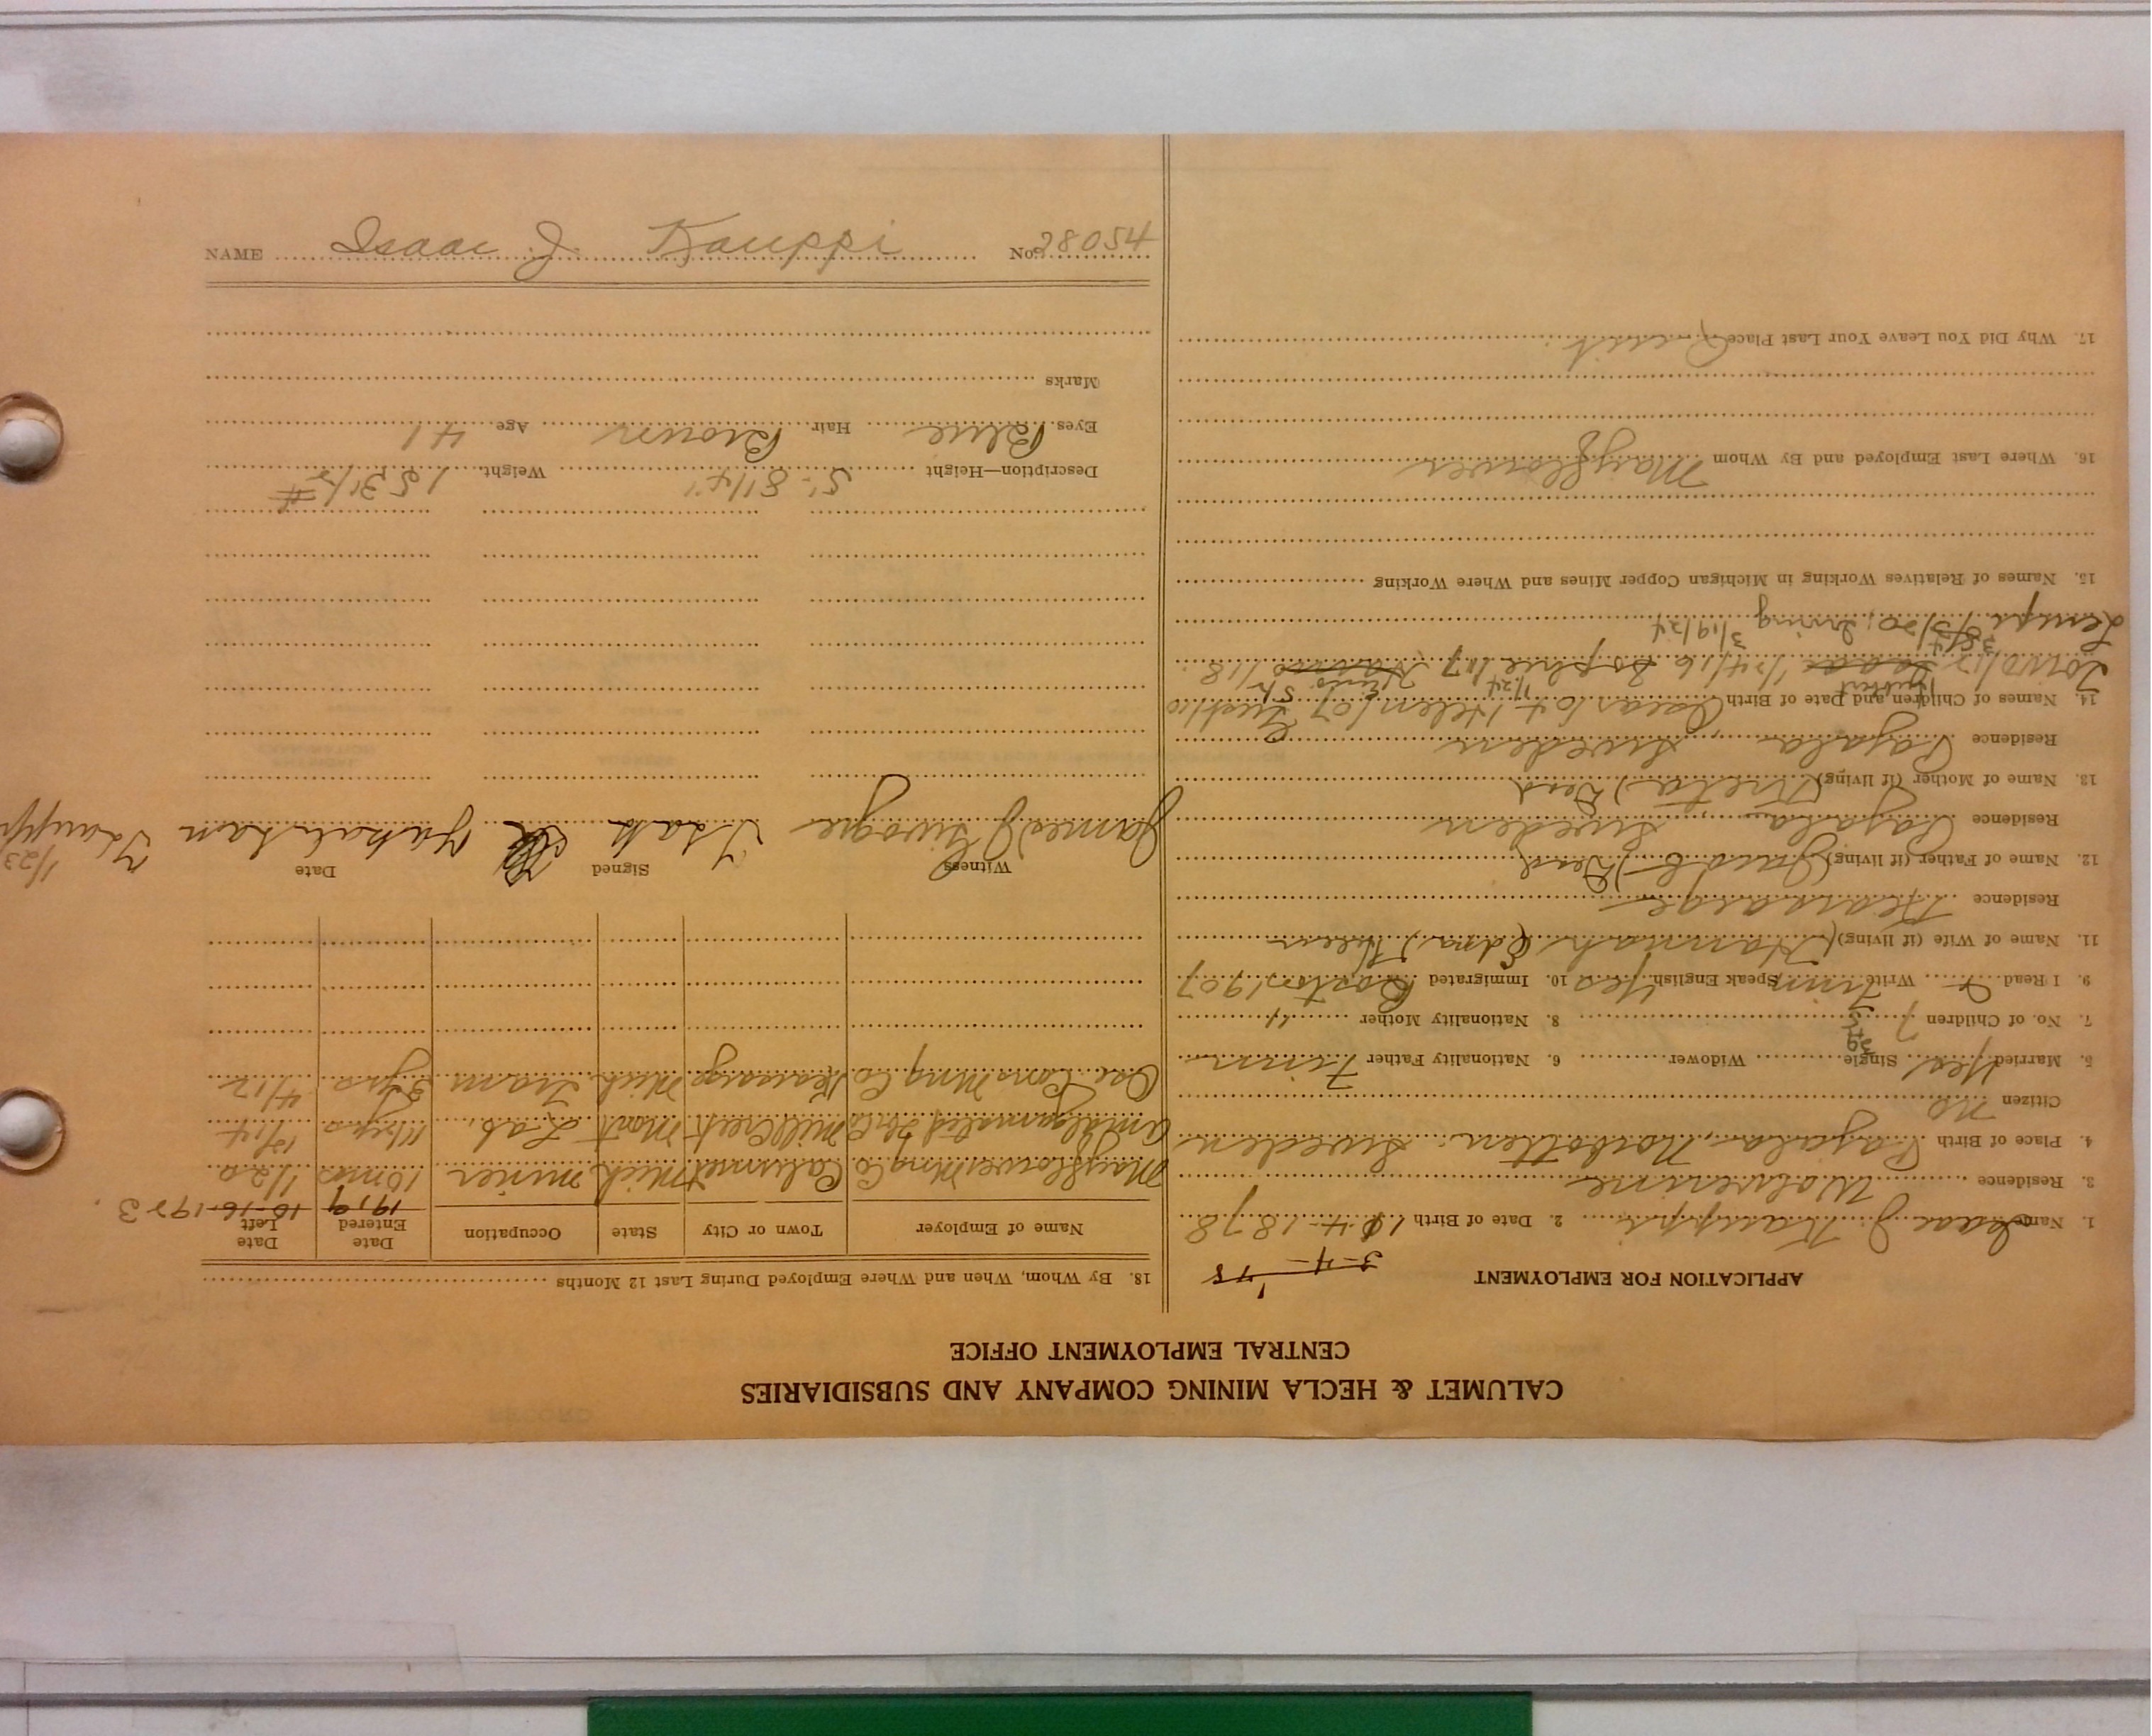 CALUMET & HECLA MINING COMPANY AND SUBSIDIARIES
CENTRAL EMPLOYMENT OFFICE
APPLICATION FOR EMPLOYMENT
1. Name Isaac J. Kauppi 2. Date of Birth 4-1878
3. Residence Wolverine
4. Place of Birth Pajala, Norbotten, Sweden
Citizen No
5. Married Yes Single Widower 6. Nationality Father Finn
7. No. of Children 7 8. Nationality Mother "
9. I Read Write Finn Speak English Yes 10. Immigrated Boston 1907
11. Name of Wife (if living) (Hannah) Edna
Residence Kearsarge
12. Name of Father (if living) (Jacob) Dead
Residence Pajala, Sweden
13. Name of Mother (if living) (Greta) Dead
Residence Pajala, Sweden
14. Names of Children and Date of Birth Helen/07
Isaac 1/24/16
3/20, Irving 3/19/24
15. Names of Relatives Working in Michigan Copper Mines and Where Working
16. Where Last Employed and By Whom Mayflower
17. Why Did You Leave Your Last Place Quit
18. By Whom, When and Where Employed During Last 12 Months
Name of Employer Town or City State Occupation Date Entered Date Left
1919 10-16-1923
Mayflower Mng Co Calumet Mich miner 10 mos 1/20
Amalgamated Mill Creek Mont Lab. 1 1/2 yrs
Osc. Cons Mng Co Kearsarge Mich Tram 3 yrs 4/12
Witness Signed Date
James J. Isak Kauppi
1/23
Description—Height 5'-8 1/4" Weight 153 1/2 #
Eyes Blue Hair Brown Age 41
Marks
NAME Isaac J. Kauppi No. 28054